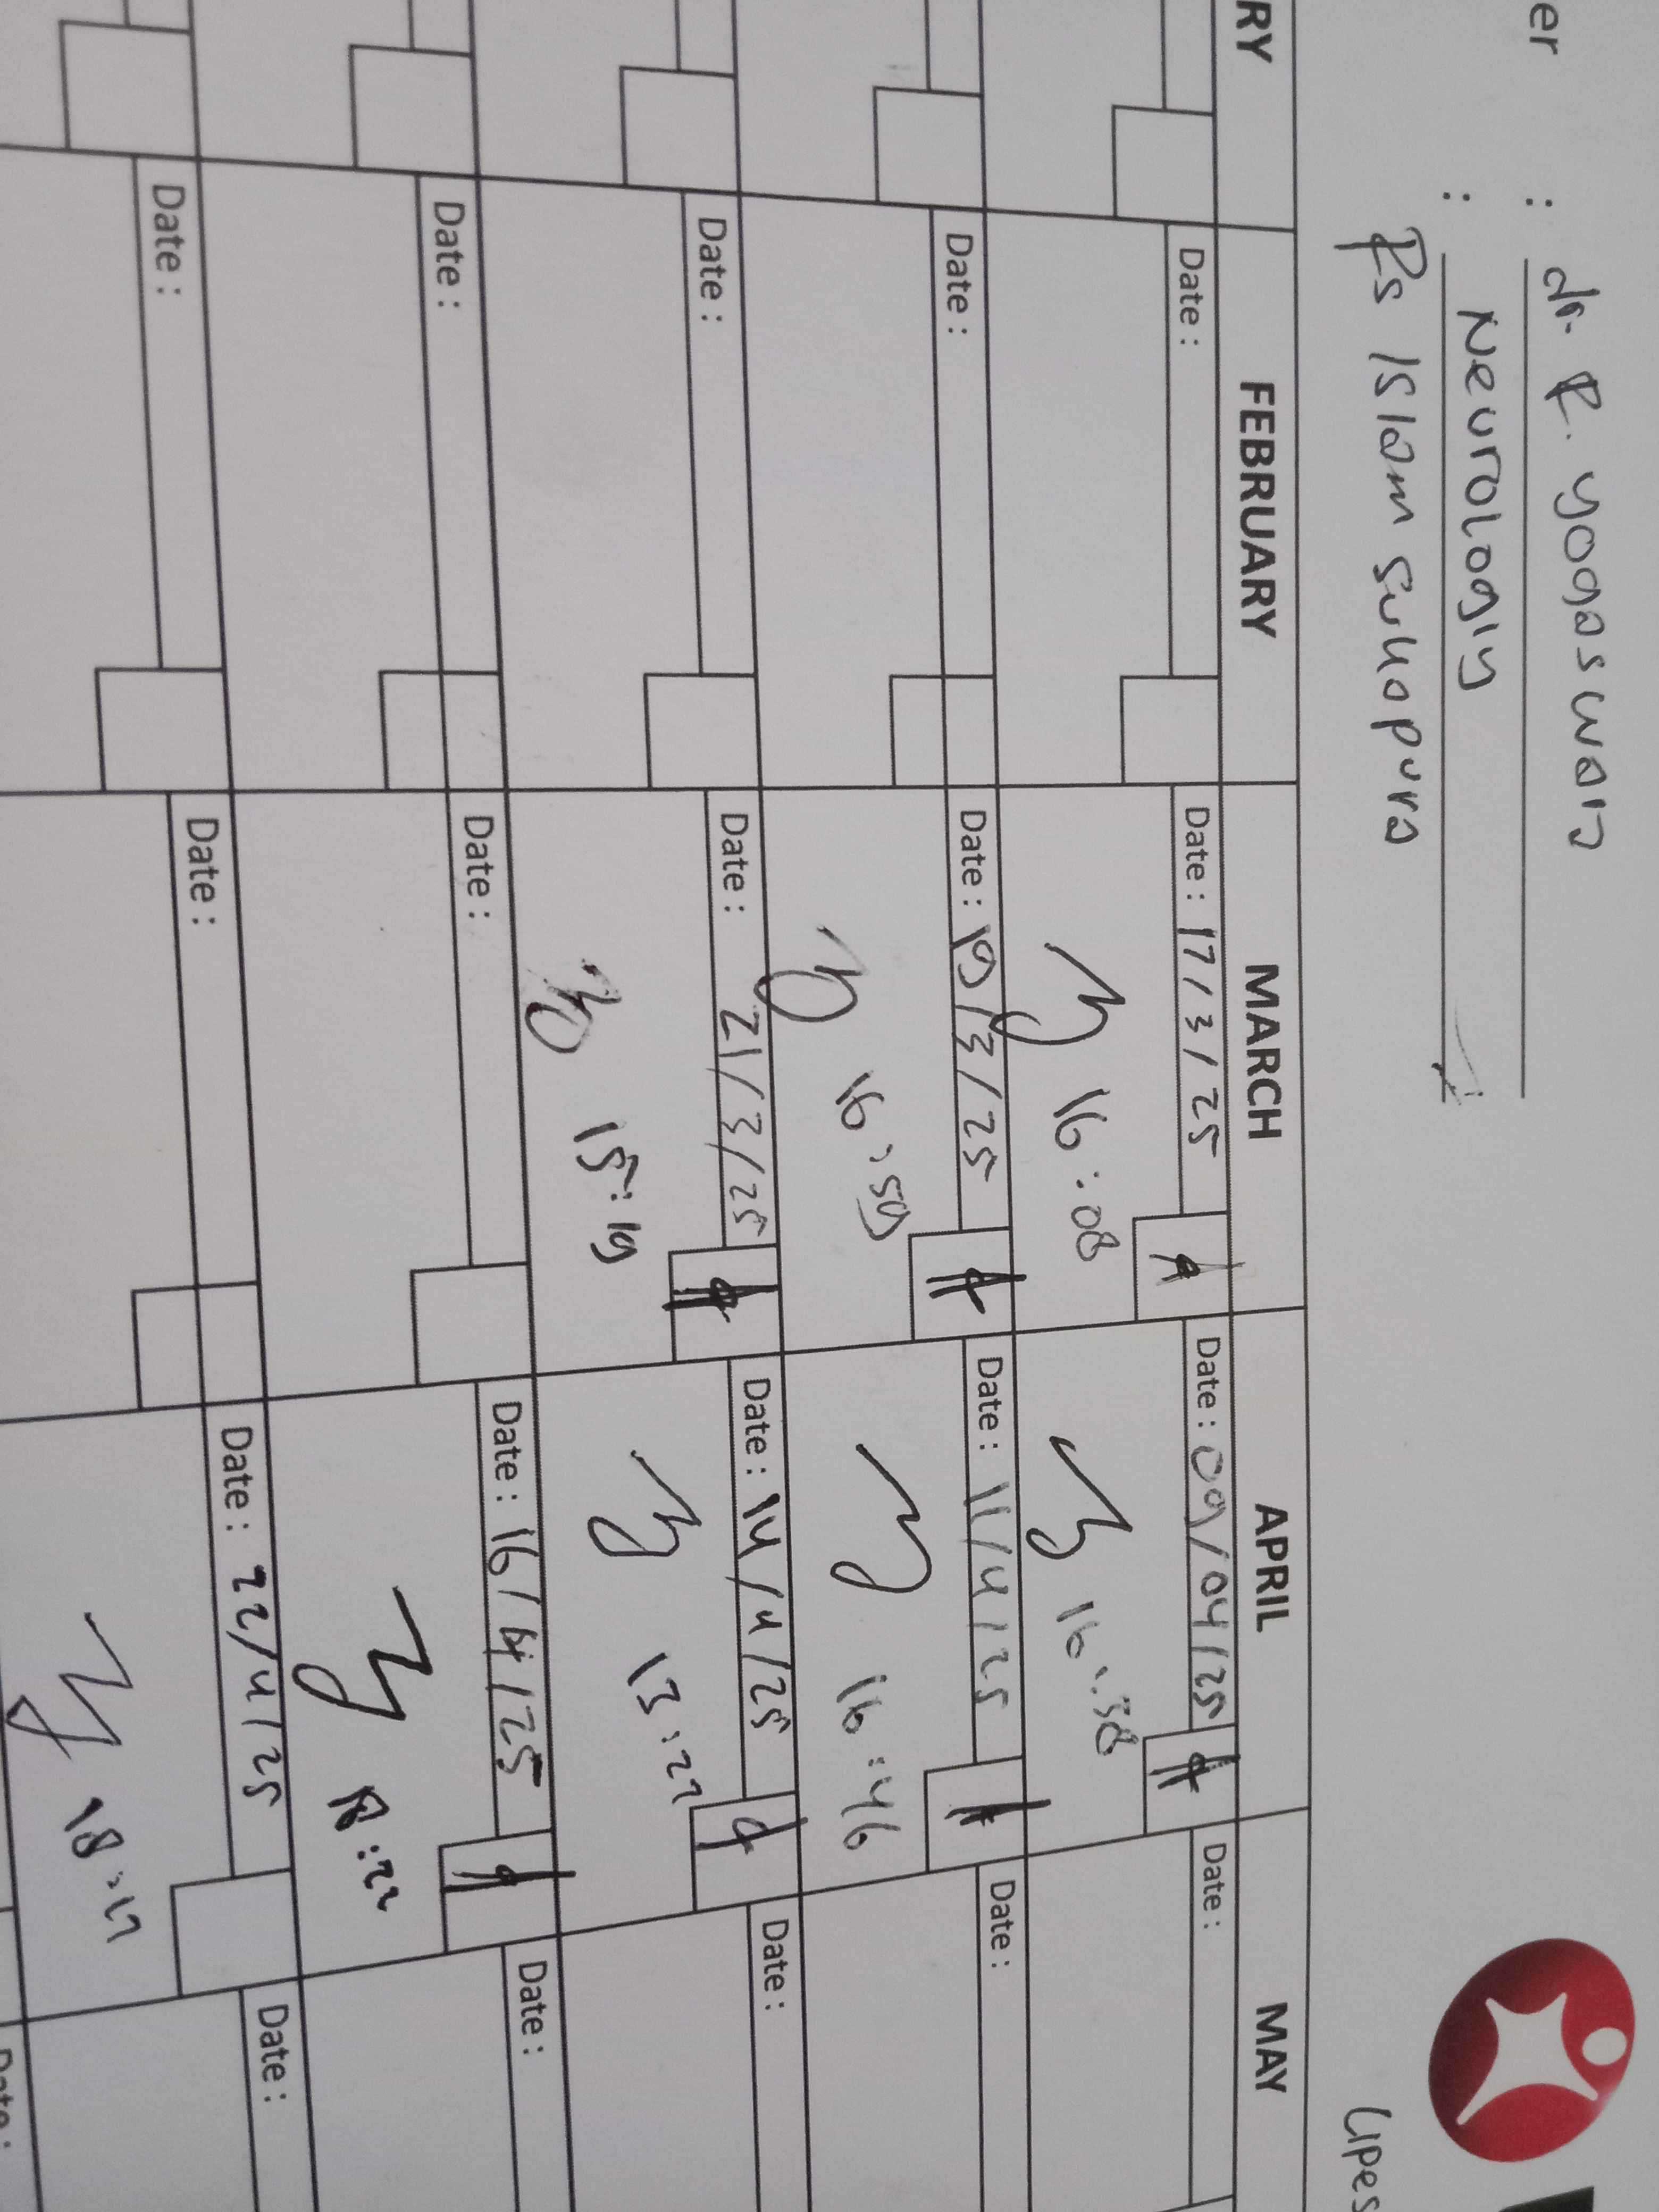 er : dr. R. yogaswara
: Neurology
Rs Islam Sukapura
RY FEBRUARY MARCH APRIL MAY
Date : Date : 17/3/25 Date : 09/04/25 Date :
16:08 16:38
Date : Date : 19/3/25 Date : 11/4/25 Date :
16:59 16:46
Date : Date : 21/3/25 Date : 14/4/25 Date :
15:19
Date : Date : Date : 16/4/25 Date :
18:22
Date : Date : Date : 22/4/25 Date :